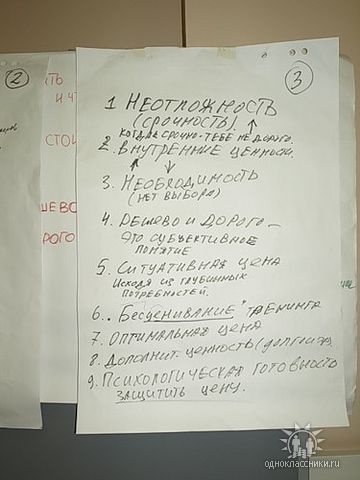 2
3
1 НЕОТЛОЖНОСТЬ
(СРОЧНОСТЬ).
КОГДА СРОЧНО-ТЕБЕ НЕ ДОРОГО.
2. ВНУТРЕННИЕ ЦЕННОСТИ.
3. НЕОБХОДИМОСТЬ
(НЕТ ВЫБОРА)
4. ДЕШЕВО И ДОРОГО —
ЭТО СУБЪЕКТИВНОЕ
ПОНЯТИЕ
5. СИТУАТИВНАЯ ЦЕНА
ИСХОДЯ ИЗ ГЛУБИННЫХ
ПОТРЕБНОСТЕЙ.
6. "БЕСЦЕНИВАНИЕ" ТРЕНИНГА
7. ОПТИМАЛЬНАЯ ЦЕНА
8. ДОПОЛНИТ. ЦЕННОСТЬ
9. ПСИХОЛОГИЧЕСКАЯ ГОТОВНОСТЬ
ЗАЩИТИТЬ ЦЕНУ.
одноклассники.ru